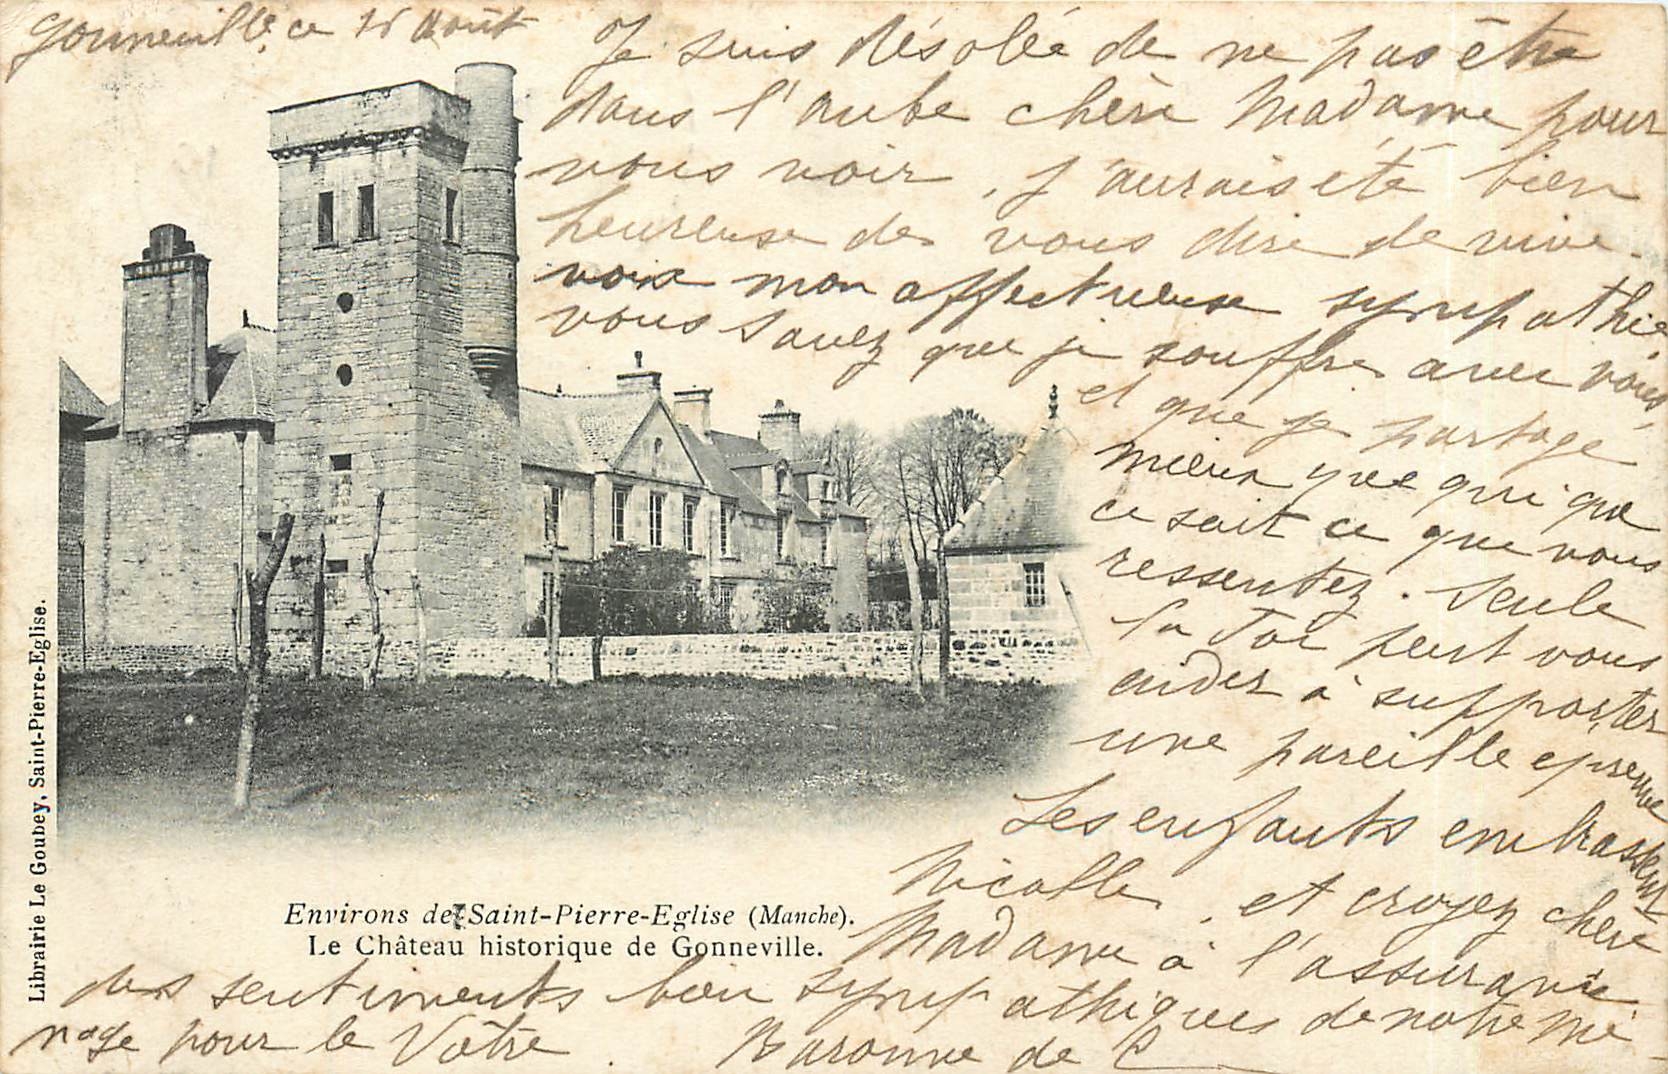 Gonneville, ce 15 Août
Je suis désolée de ne pas être
dans l'aube chère Madame pour
vous voir, j'aurais été bien
heureuse de vous dire de vive
voix mon affectueuse sympathie
vous savez que je souffre avec vous,
et que je partage
mieux que qui que
ce soit ce que vous
ressentez. Seule
la Foi peut vous
aider à supporter
une pareille epreuve
Les enfants embrassent
Nicolle, et croyez chère
Madame à l'assurance
des sentiments bien sympathiques de notre mé-
nage pour le Vôtre. Baronne de
Environs de Saint-Pierre-Eglise (Manche).
Le Château historique de Gonneville.
Librairie Le Goubey, Saint-Pierre-Eglise.